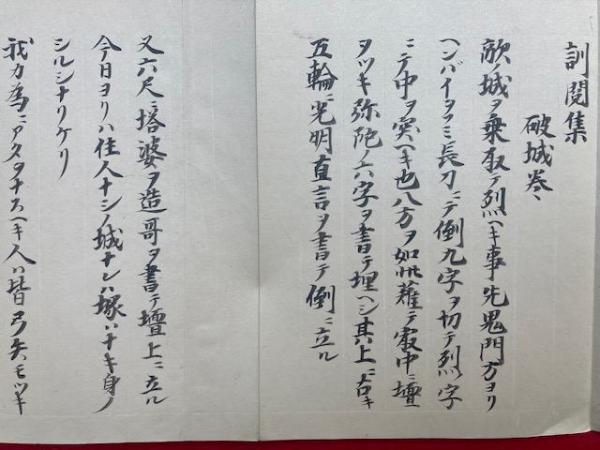 訓閲集
破城巻
敵ノ城ヲ乗取テ烈ヘキ事先鬼門方ヨリ
ヘンバイヲフミ長刀ニテ倒九字ヲ切テ烈ノ字
ニテ中ヲ突ヘキ也八方ヲ如此薙テ最中ニ壇
ヲツキ弥陀ノ六字ヲ書テ埋ヘシ其上ニ石キ
五輪ニ光明真言ヲ書テ倒ニ立ル
又六尺ニ塔婆ヲ造哥ヲ書テ壇上ニ立ル
今日ヨリハ住人ナシノ城ナレハ塚ハナキ身ノ
シルシナリケリ
我カ為ニアタヲナスヘキ人ハ皆弓矢モツキ